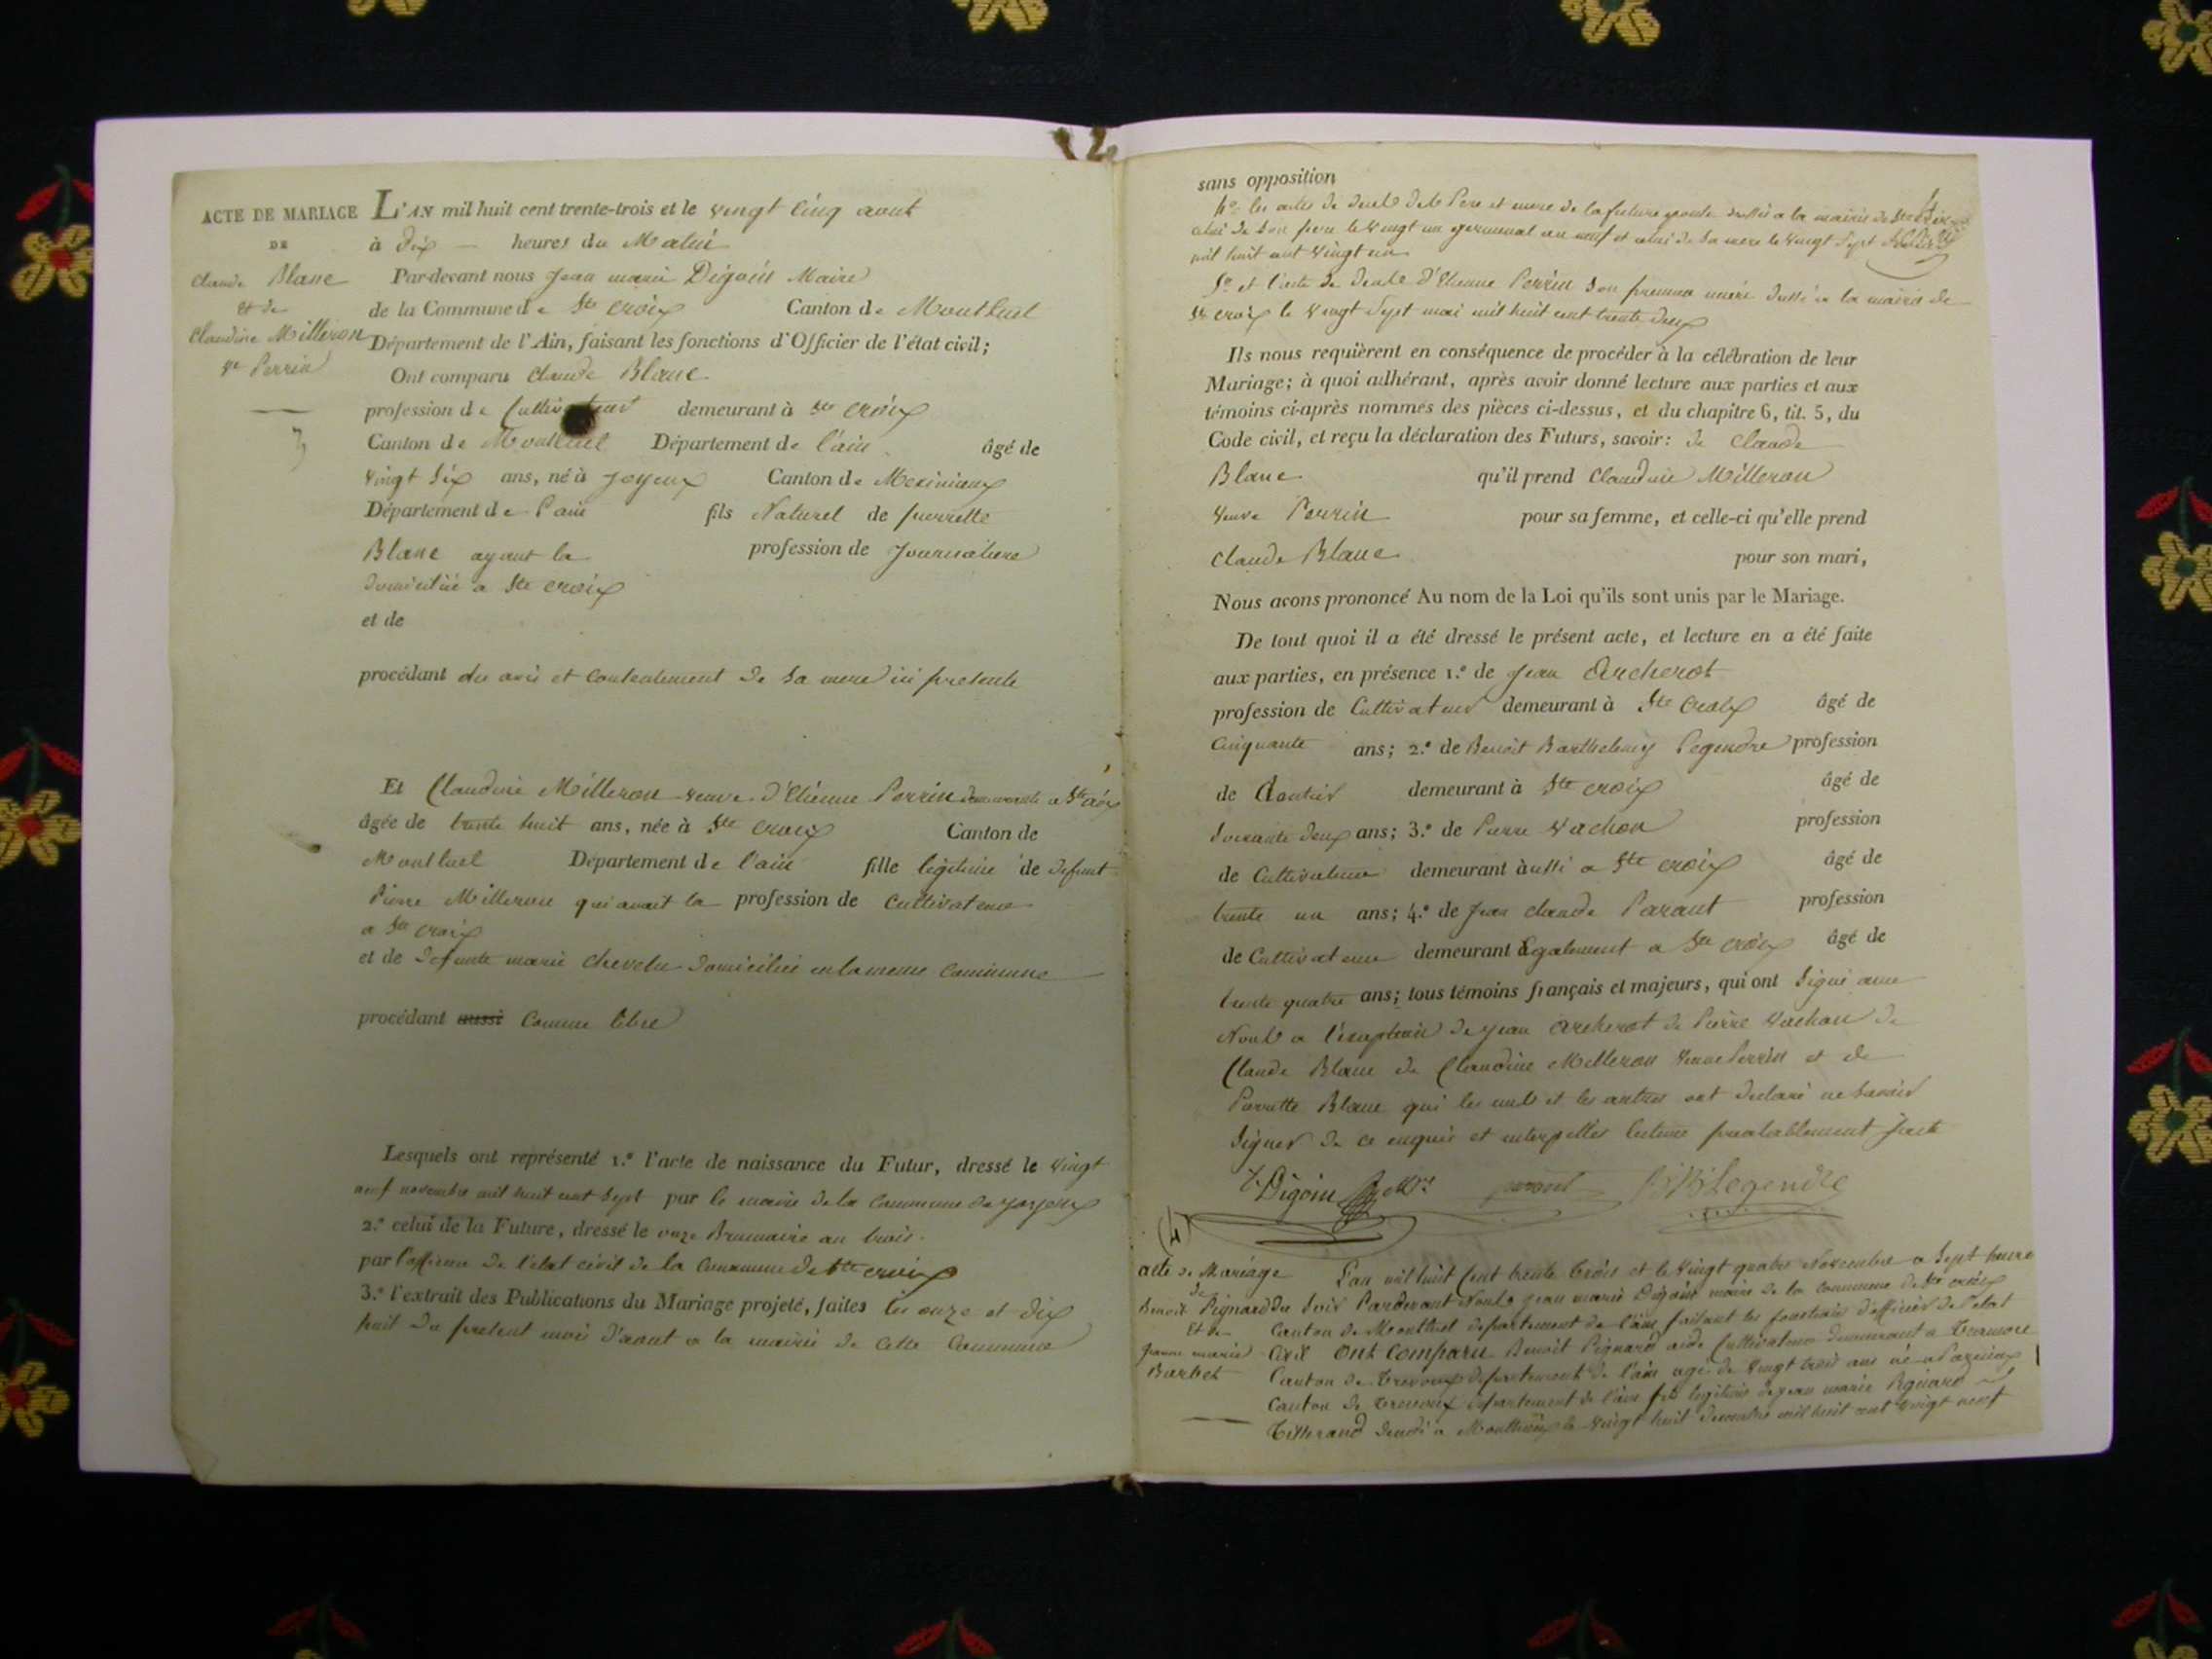 ACTE DE MARIAGE
DE
Claude Blanc
et de
Claudine Milleron
Ve Perrin
3
L'AN mil huit cent trente-trois et le vingt cinq aout
à dix — heures du Matin
Par-devant nous Jean marie Digoin Maire
de la Commune de Ste croix Canton de Montluel
Département de l'Ain, faisant les fonctions d'Officier de l'état civil;
Ont comparu Claude Blanc
profession de Cultivateur demeurant à Ste croix
Canton de Montluel Département de l'ain âgé de
vingt six ans, né à Joyeux Canton de Meximieux
Département de l'ain fils Naturel de pierrette
Blanc ayant la profession de Journaliere
domiciliée a Ste croix
et de
procédant du avis et consentement de sa mere ici presente
Et Claudine Milleron veuve d'Etienne Perrin demeurante a Ste croix
âgée de trente huit ans, née à Ste croix Canton de
Montluel Département de l'ain fille légitime de defunt
Pierre Milleron qui avait la profession de Cultivateur
a Ste croix
et de defunte marie chevelu domiciliée en la meme commune
procédant aussi comme libre
Lesquels ont représenté 1.° l'acte de naissance du Futur, dressé le vingt
neuf novembre mil huit cent sept par le maire de la Commune de joyeux
2.° celui de la Future, dressé le onze Brumaire an trois
par l'officier de l'état civil de la Commune de Ste croix
3.° l'extrait des Publications du Mariage projeté, faites les onze et dix
huit du present mois d'aout a la mairie de cette Commune
sans opposition
4° les actes de deces de le Pere et mere de la future epouse dressés a la mairie de Ste croix
celui de son pere le vingt un germinal an neuf et celui de sa mere le vingt sept
mil huit cent vingt un
5° et l'acte de deces d'Etienne Perrin son premier mari dressé a la mairie de
Ste croix le vingt sept mai mil huit cent trente deux
Ils nous requièrent en conséquence de procéder à la célébration de leur
Mariage; à quoi adhérant, après avoir donné lecture aux parties et aux
témoins ci-après nommés des pièces ci-dessus, et du chapitre 6, tit. 5, du
Code civil, et reçu la déclaration des Futurs, savoir: de Claude
Blanc qu'il prend Claudine Milleron
veuve Perrin pour sa femme, et celle-ci qu'elle prend
Claude Blanc pour son mari,
Nous avons prononcé Au nom de la Loi qu'ils sont unis par le Mariage.
De tout quoi il a été dressé le présent acte, et lecture en a été faite
aux parties, en présence 1.° de Jean Archerot
profession de Cultivateur demeurant à Ste Croix âgé de
cinquante ans; 2.° de Benoit Barthelemy Legendre profession
de demeurant à Ste croix âgé de
soixante deux ans; 3.° de Pierre Vachon profession
de Cultivateur demeurant aussi a Ste croix âgé de
trente un ans; 4.° de Jean claude Parant profession
de Cultivateur demeurant Egalement a Ste croix âgé de
trente quatre ans; tous témoins français et majeurs, qui ont signé avec
Nous a l'exception de Jean Archerot de Pierre Vachon de
Claude Blanc de Claudine Milleron veuve Perrin et de
Pierrette Blanc qui les uns et les autres ont declaré ne savoir
signer de ce enquis et interpellés lecture prealablement faite
Digoin Mre parant B B Legendre
(4)
acte de Mariage
de
Benoit Pignard
Et de
jeanne marie
Barbet
L'an mil huit Cent trente trois et le vingt quatre Novembre a sept heure
du soir Pardevant Nous Jean marie Digoin maire de la commune de Ste croix
Canton de Montluel département de l'ain faisant les fonctions d'officier de l'etat
Civil Ont Comparu Benoit Pignard aide Cultivateur demeurant a Tramoye
Canton de Trevoux departement de l'ain agé de vingt trois ans né a Parcieux
Canton de Trevoux departement de l'ain fils legitime de jean marie Pignard
Tisserand decedé a le vingt huit decembre mil huit cent vingt neuf